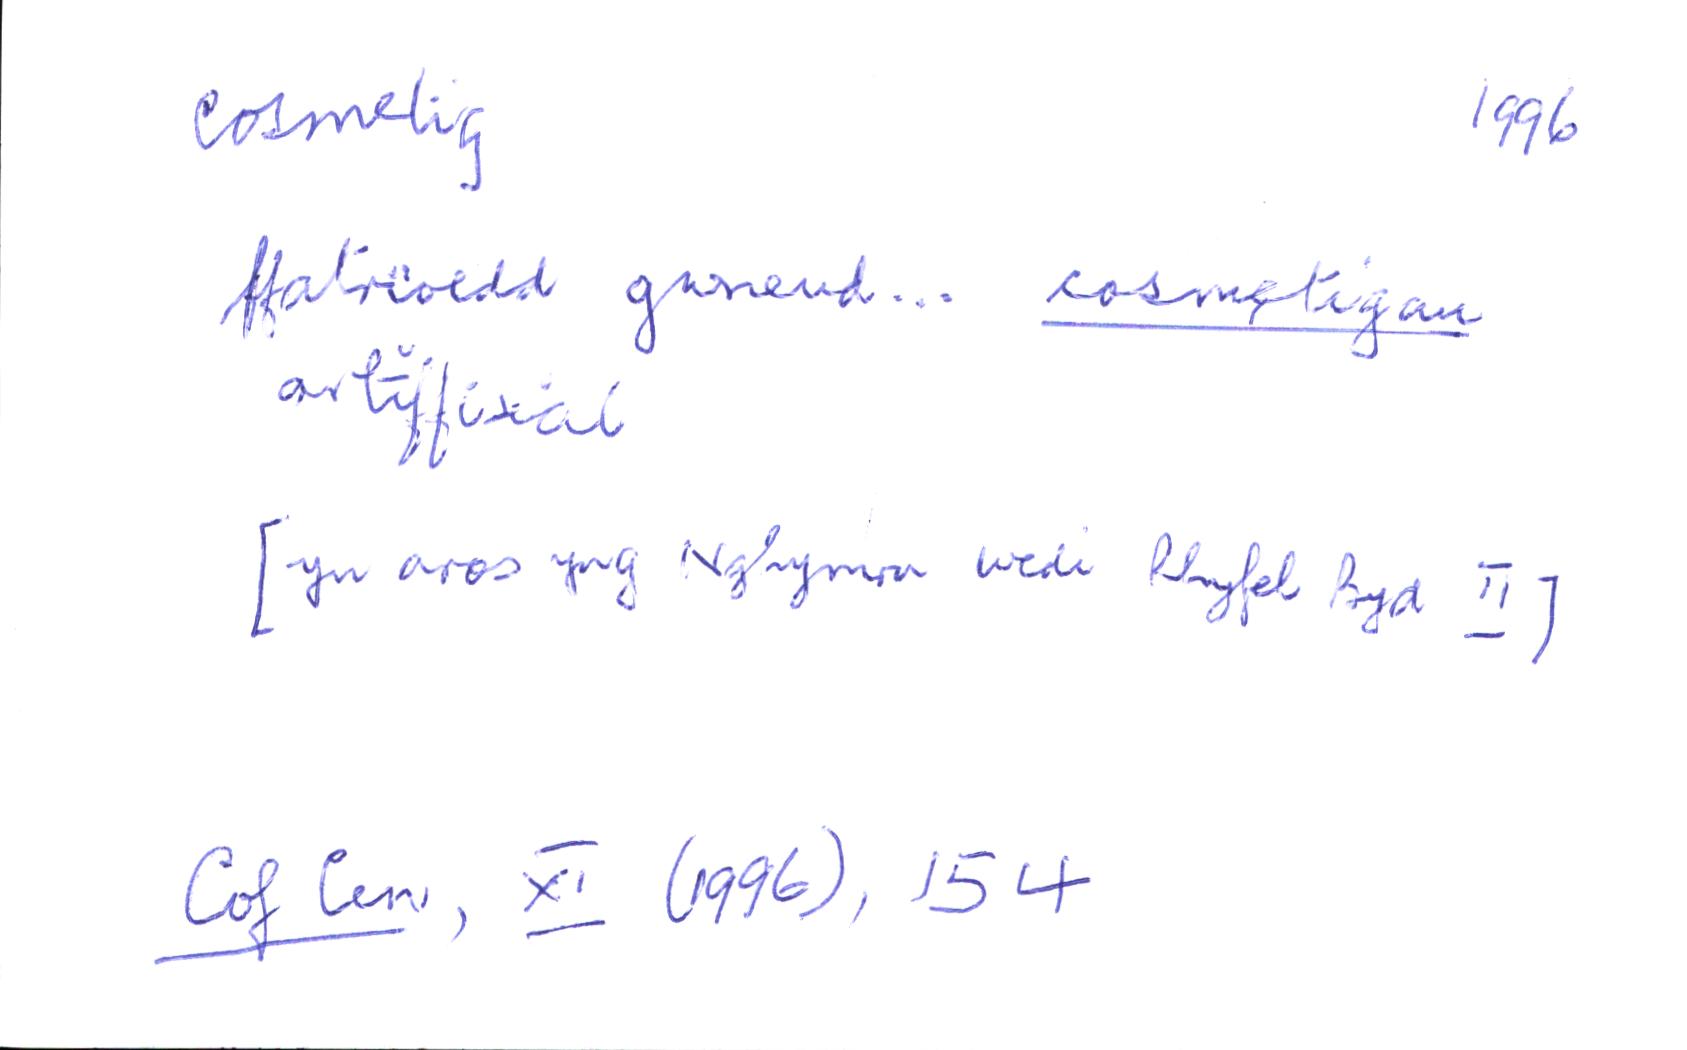 cosmetig 1996
ffatrïoedd gwneud... cosmetigau
artiffisial
[yn aros yng Nghymru wedi Rhyfel Byd II]
Cof Cen, XI (1996), 154